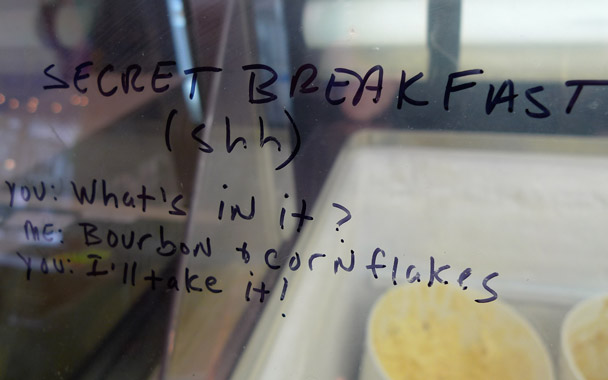 SECRET BREAKFAST
(shh)
YOU: What's iN it?
ME: BourboN & corNflakes
YOU: I'll take it!